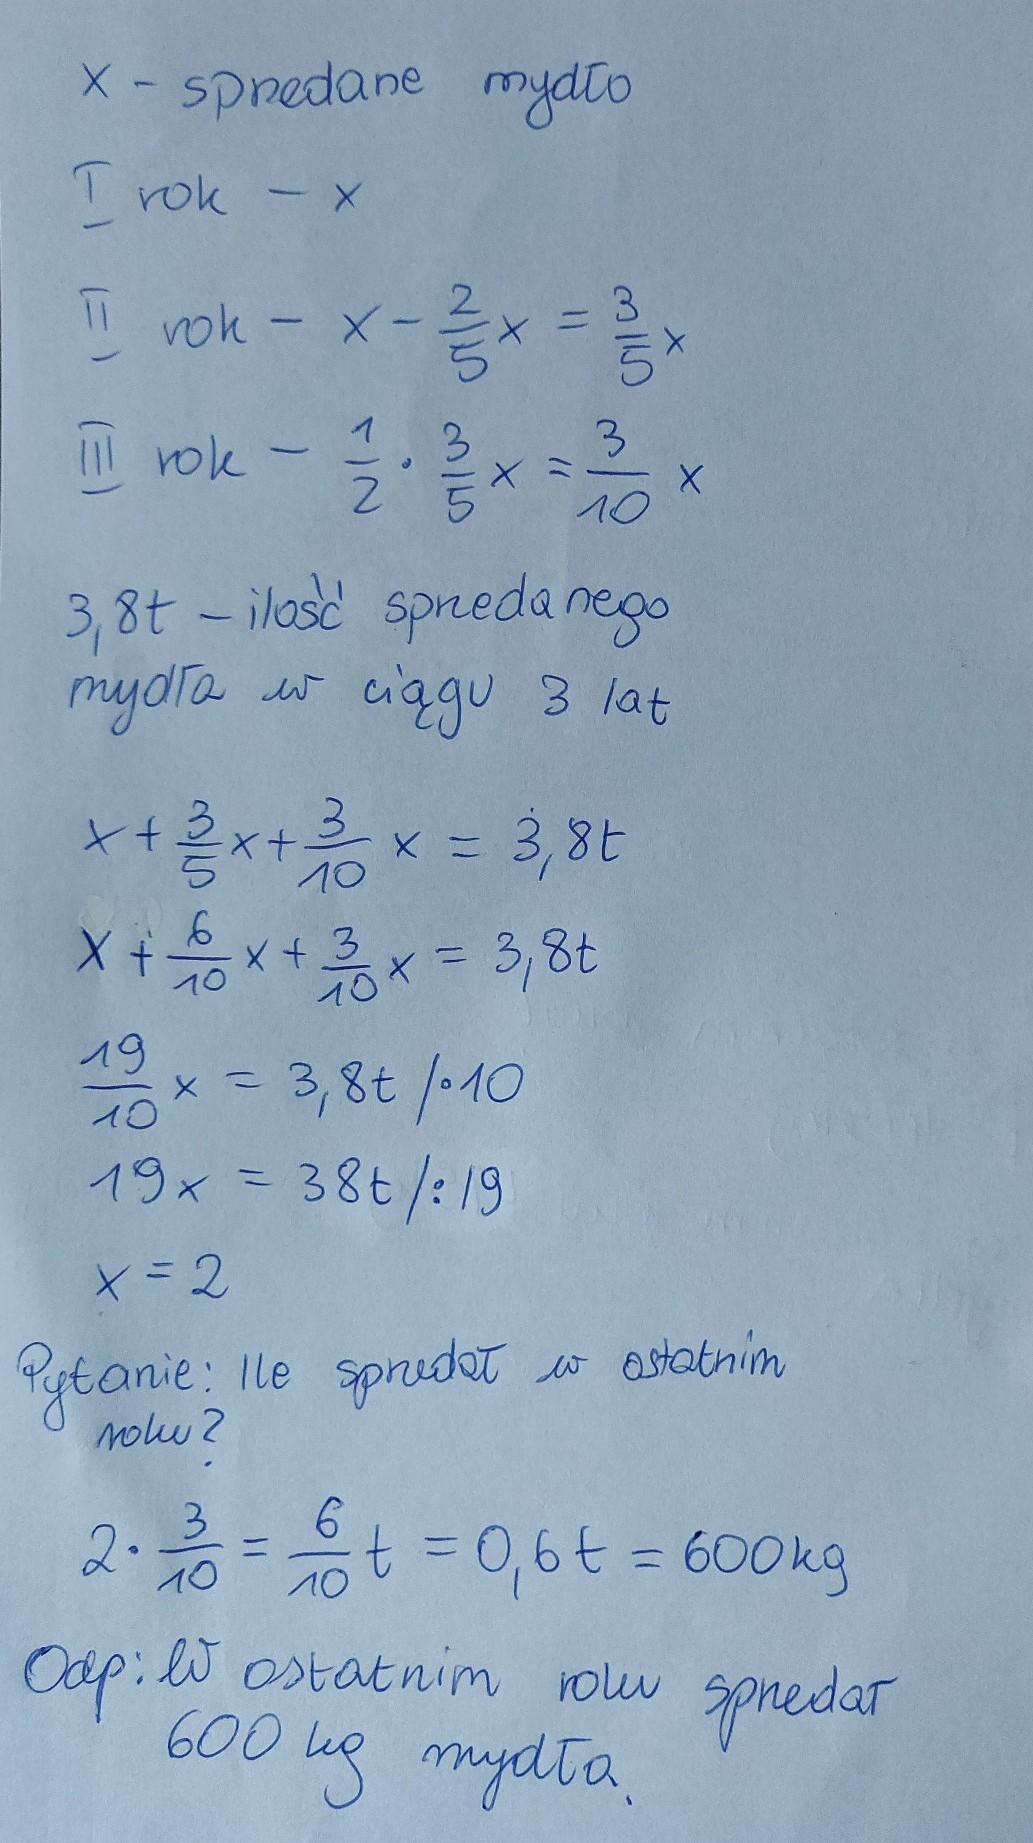 x - sprzedane mydło
I rok - x
II rok - x - 2/5 x = 3/5 x
III rok - 1/2 · 3/5 x = 3/10 x
3,8t - ilość sprzedanego
mydła w ciągu 3 lat
x + 3/5 x + 3/10 x = 3,8t
x + 6/10 x + 3/10 x = 3,8t
19/10 x = 3,8t /·10
19x = 38t /:19
x = 2
Pytanie: Ile sprzedał w ostatnim
roku?
2 · 3/10 = 6/10 t = 0,6t = 600kg
Odp: W ostatnim roku sprzedał
600 kg mydła.